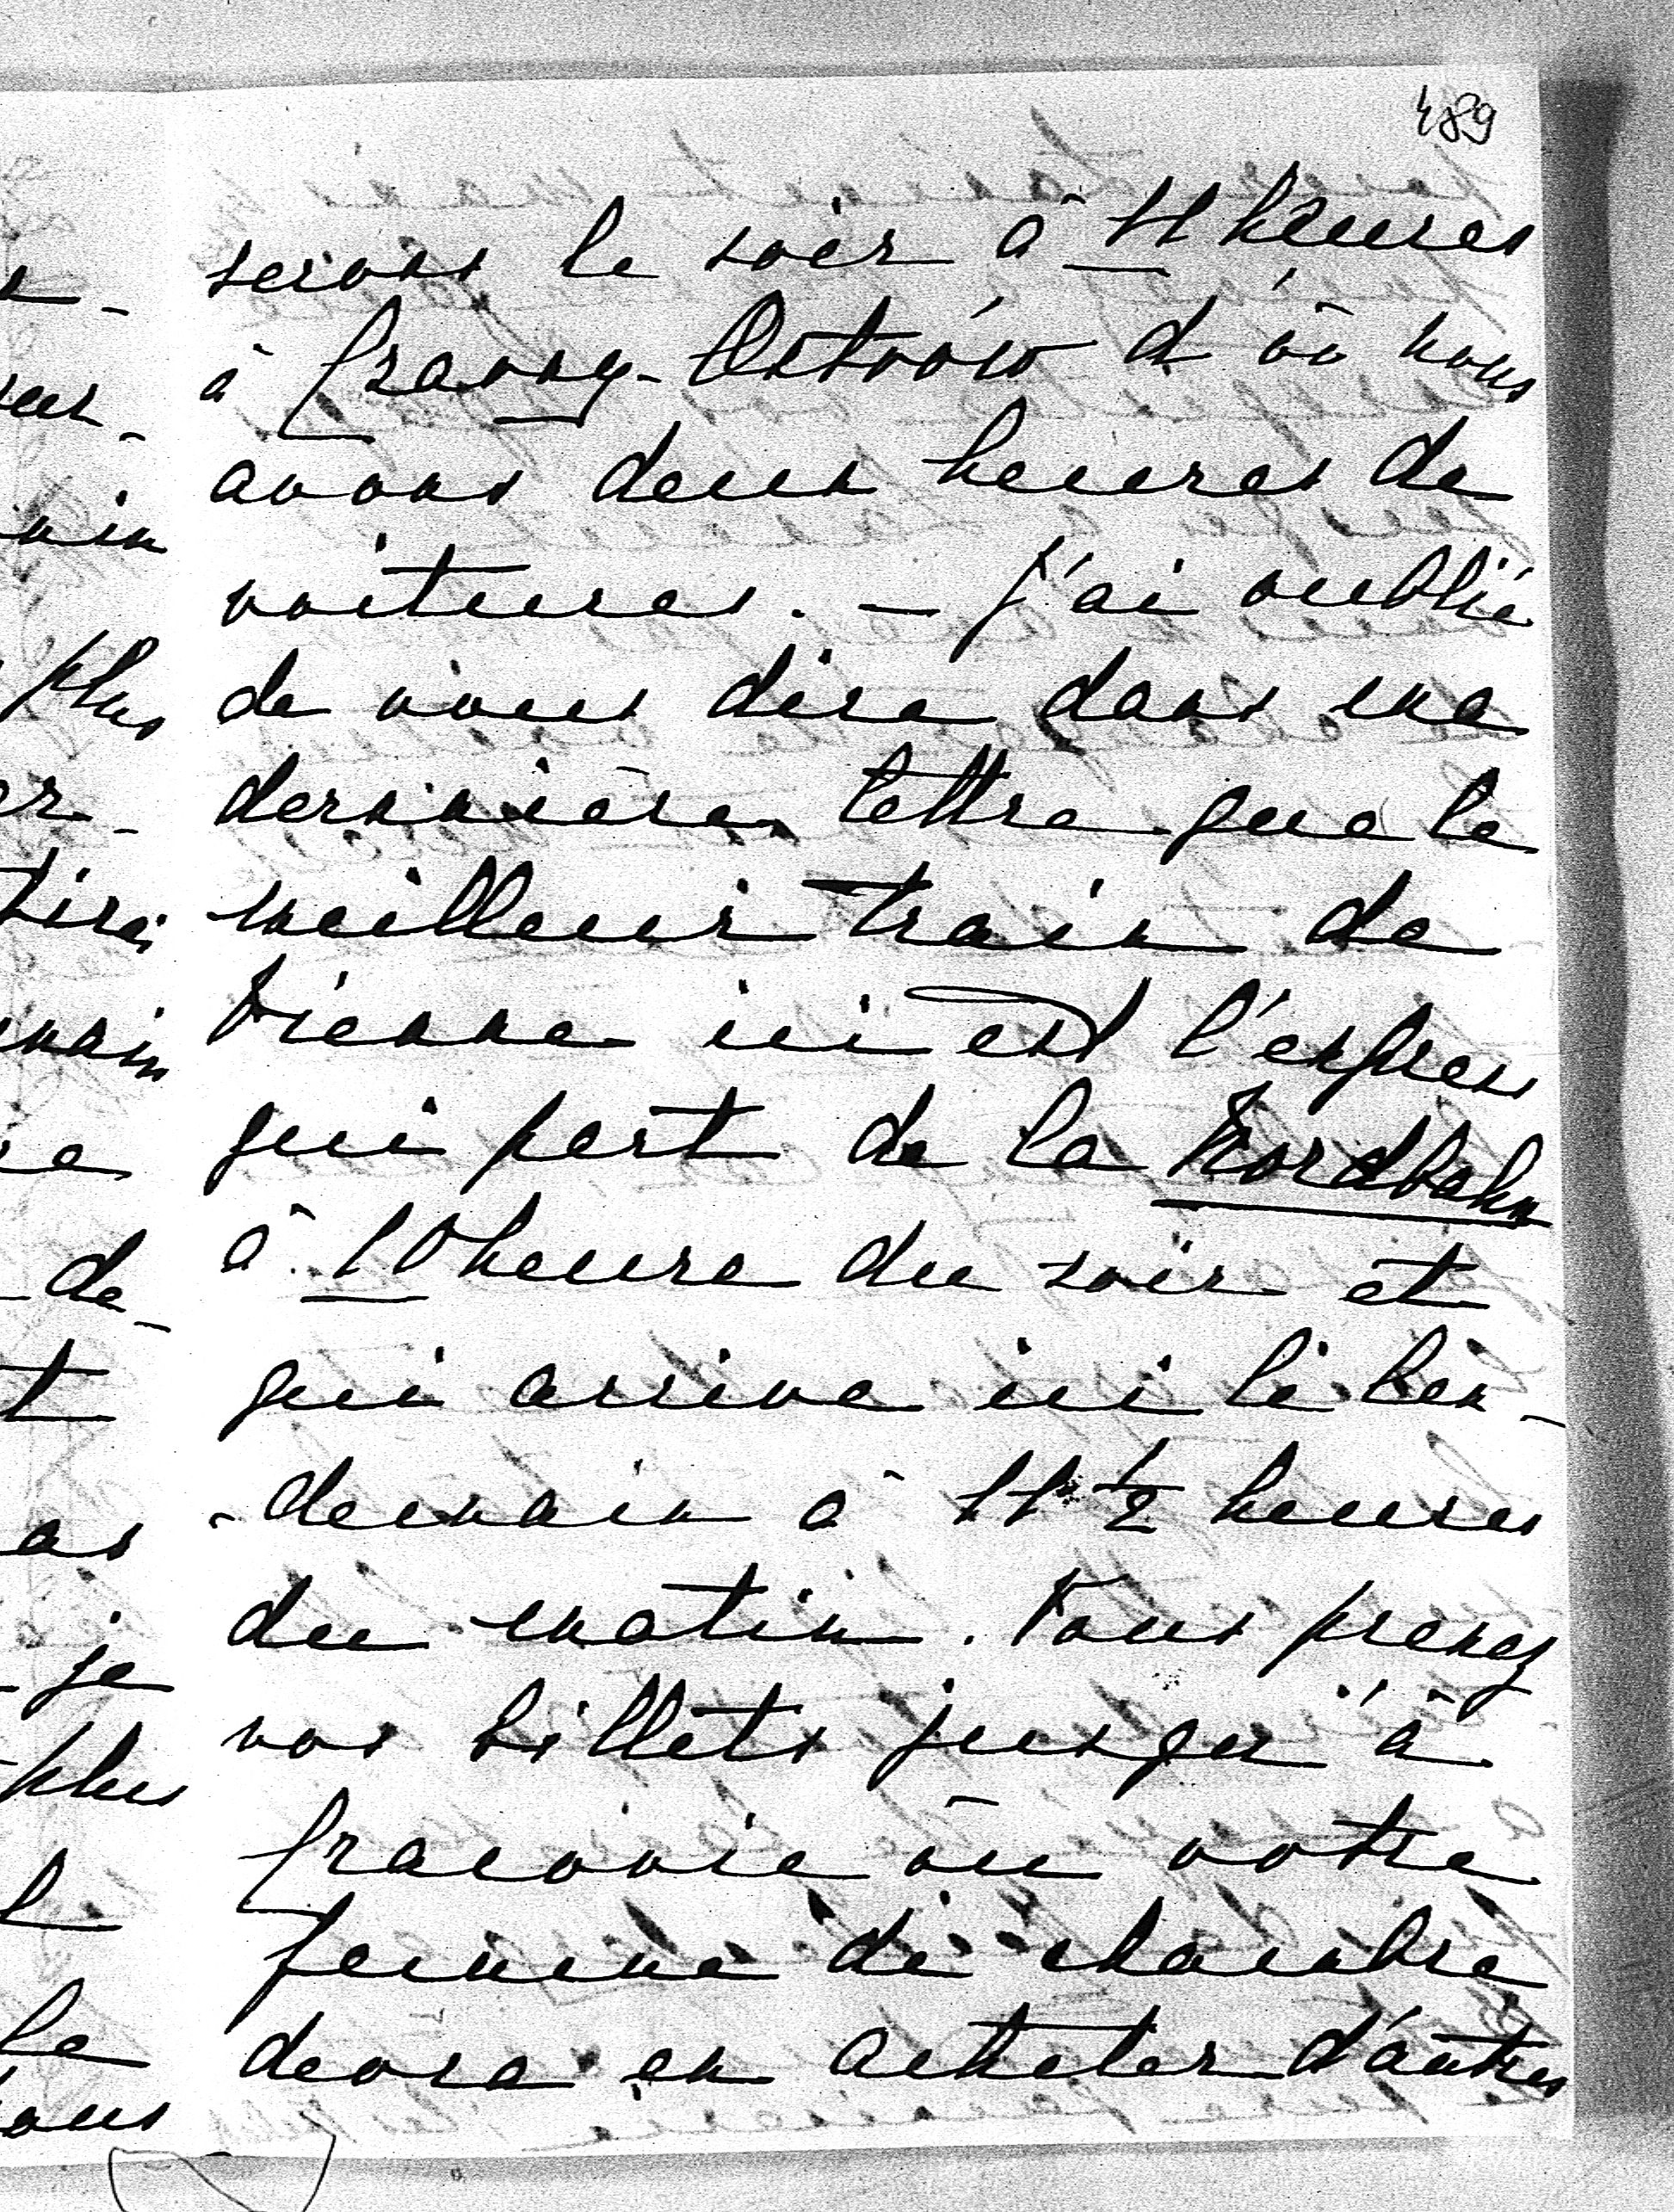 489
serons le soir à 11 heures
à Granny-Ostrów d'où nous
avons deux heures de
voitures. – J'ai oublié
de vous dire dans ma
dernnière lettre que le
meilleur train de
Vienne ici est l'express
qui part de la Nordbahn
à 10 heure du soir et
qui arrive ici le len-
-demain à 11 1/2 heures
du matin. Vous prenez
vos billets jusqu'à
Cracovie où votre
femme de chambre
devra en acheter d'autres
plus
de-
je
plus
le